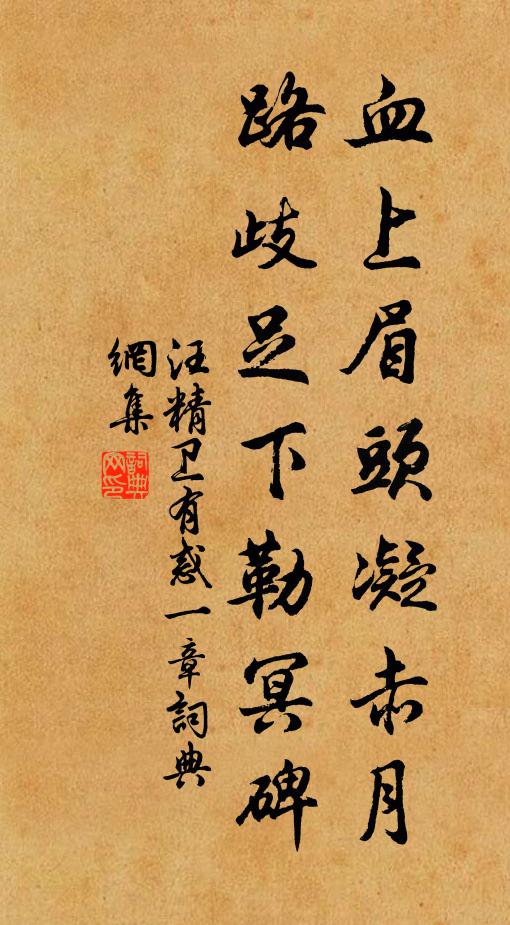 血上眉頭凝赤月
路歧足下勒冥碑
汪精卫有感一章詞典
網集
詞典
网印